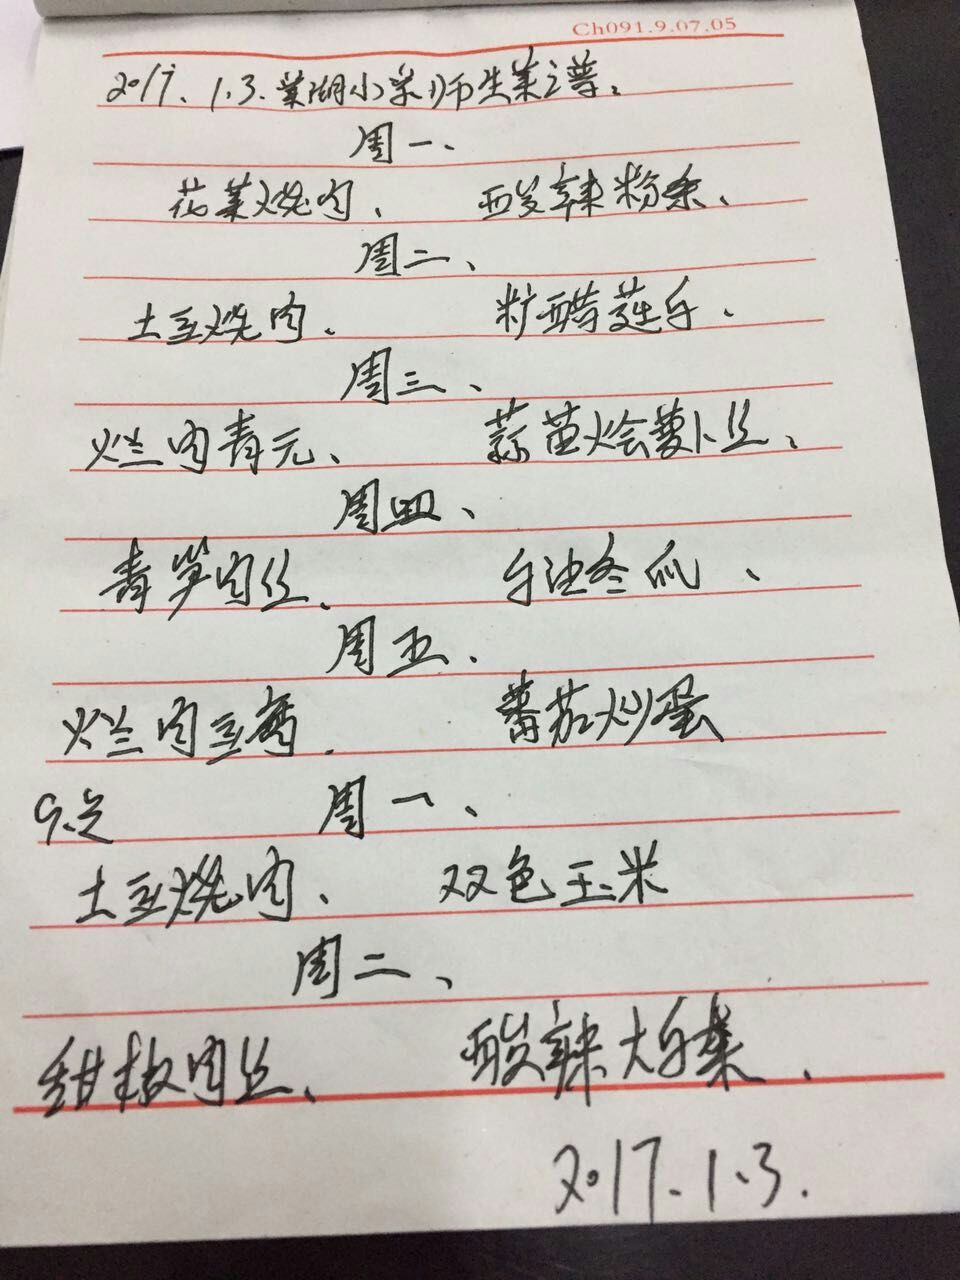 Ch091.9.07.05
2017.1.3.菜湖小学师生菜谱。
周一、
花菜烧肉、 酸辣粉条、
周二、
土豆烧肉、 糖醋莲白、
周三、
烂肉青元、 蒜苗烩萝卜丝、
周四、
青笋肉丝、 白油冬瓜、
周五、
烂肉豆腐、 蕃茄炒蛋
周一、
土豆烧肉、 双色玉米
周二、
甜椒肉丝、 酸辣大白菜、
2017.1.3.